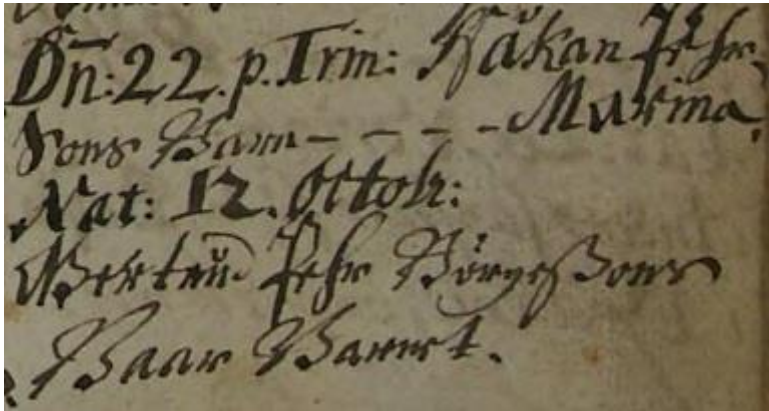 Dn: 22. p. Trin: Håkan Pehr-
sons Barn - - - - - Marina.
Nat: 12. Octobr:
Gertrud Pehr Börgessons
Baar Barnet.